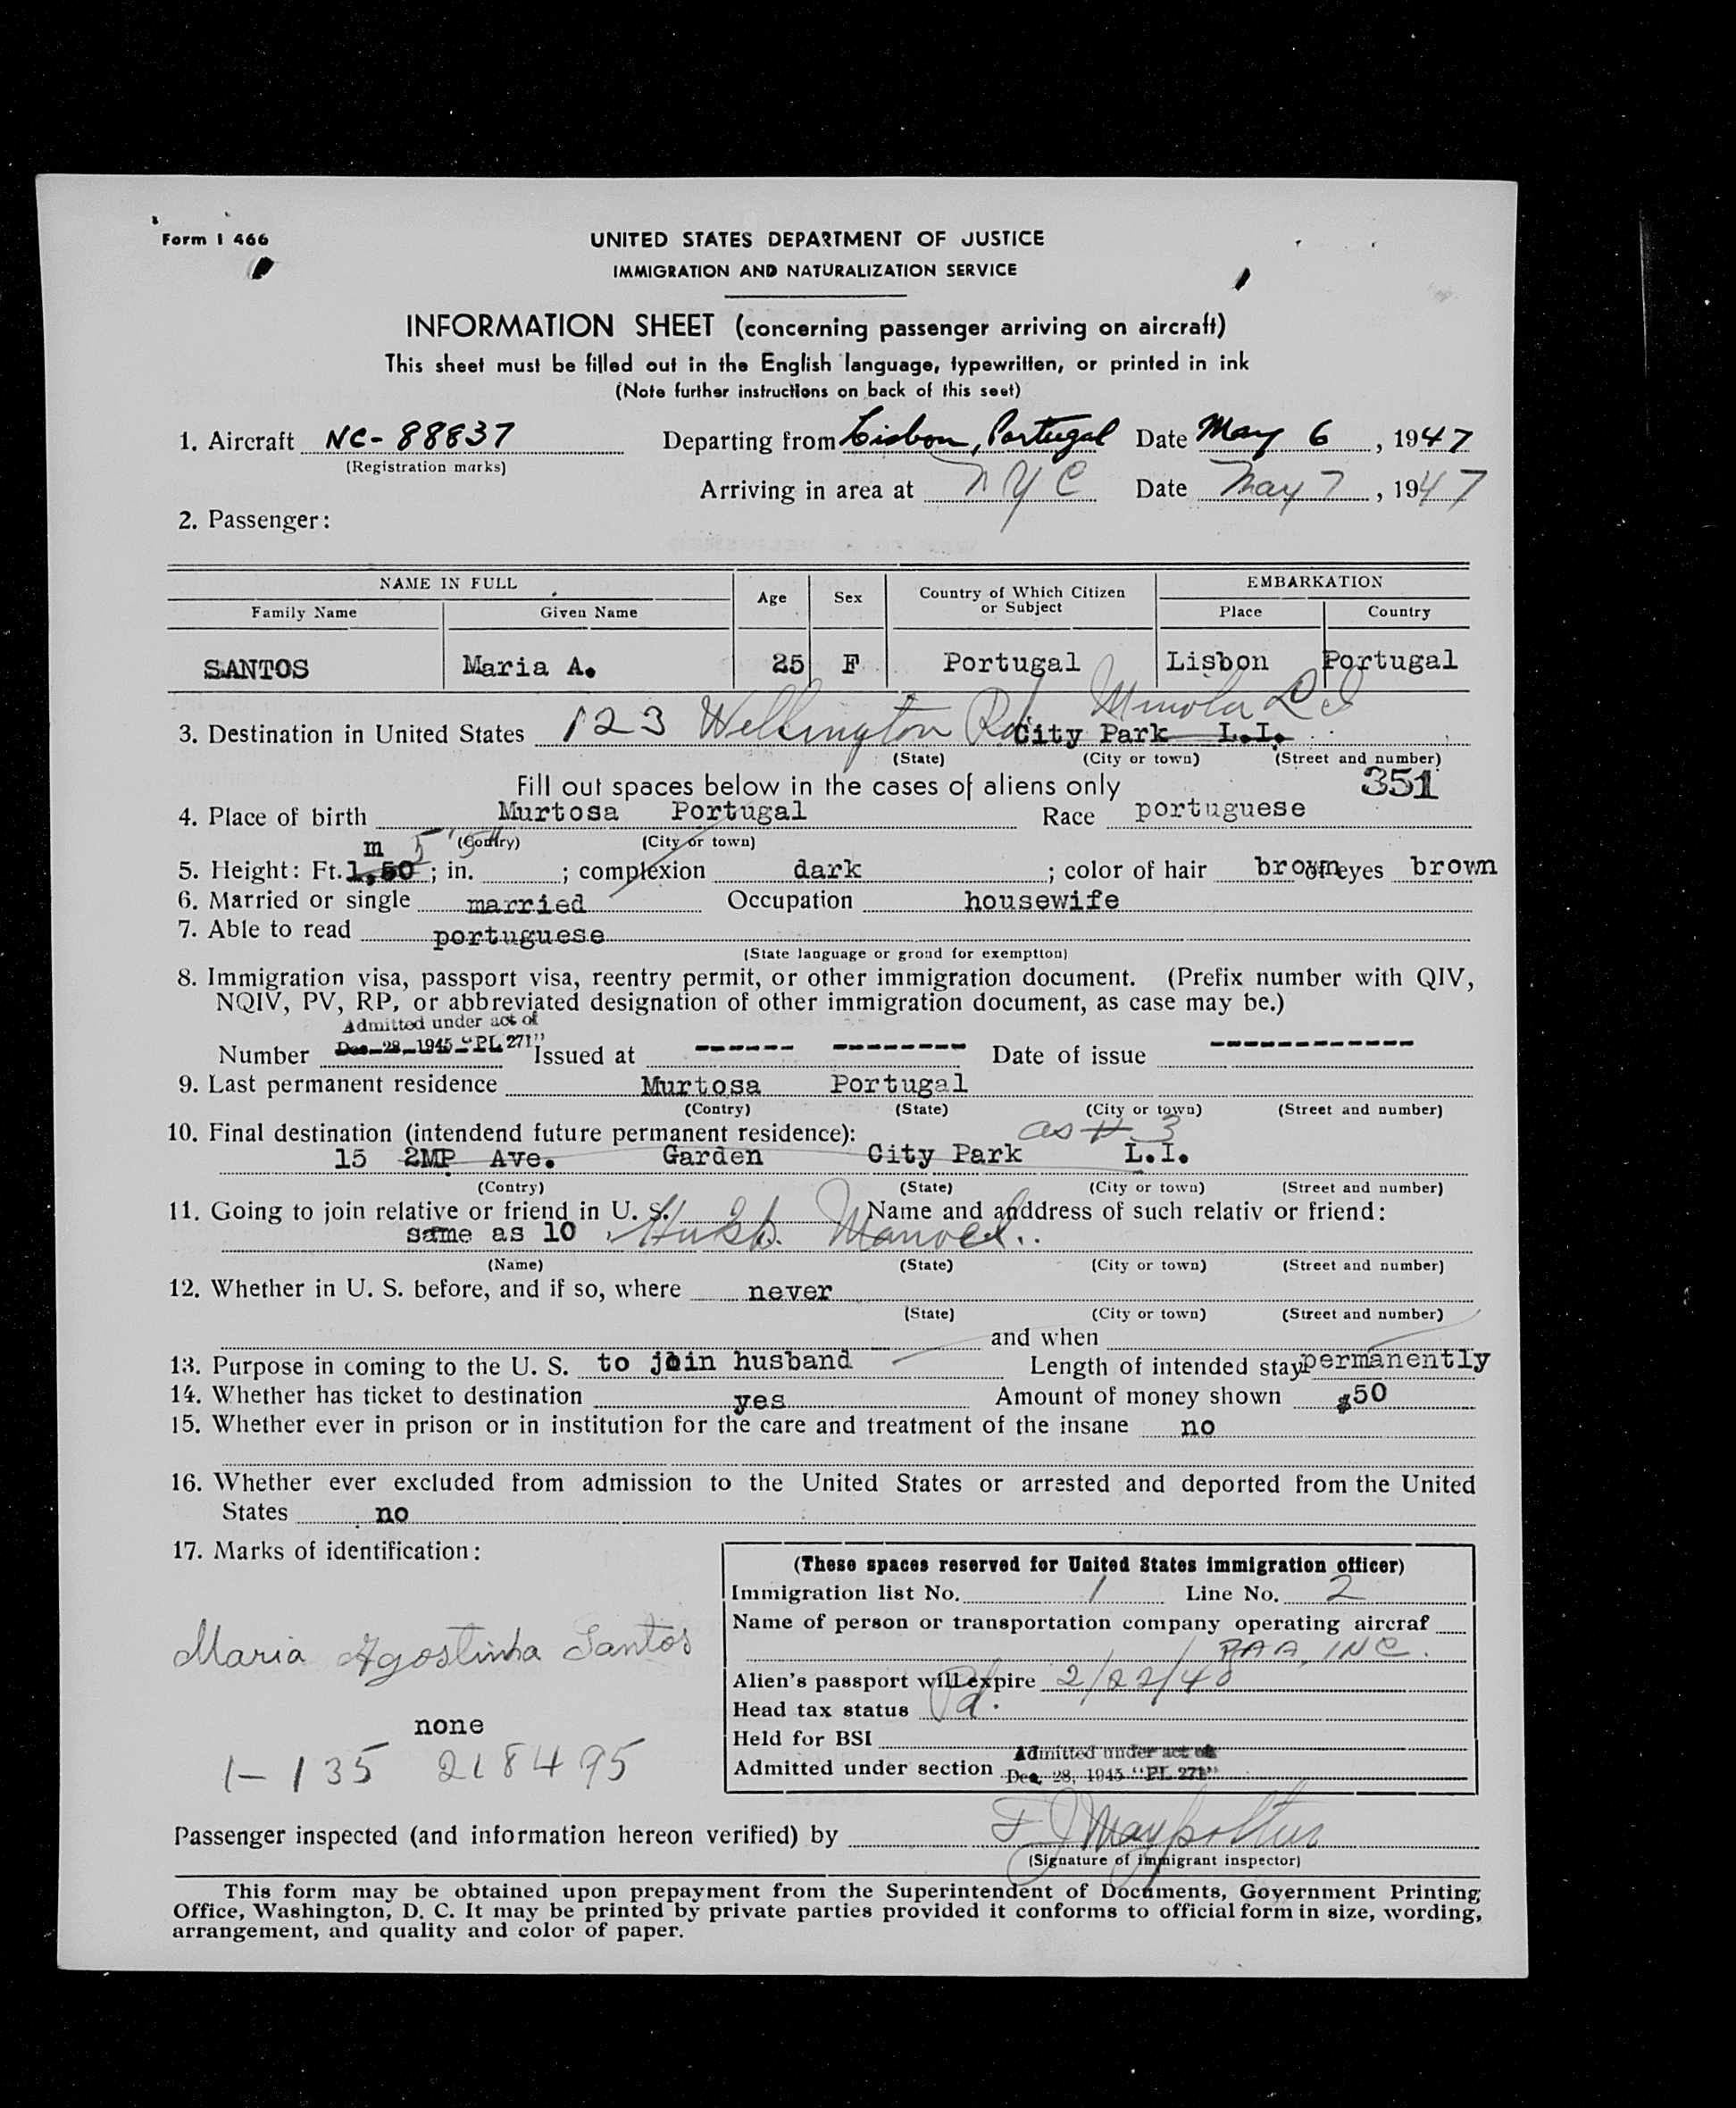 Form I 466
UNITED STATES DEPARTMENT OF JUSTICE
IMMIGRATION AND NATURALIZATION SERVICE
INFORMATION SHEET (concerning passenger arriving on aircraft)
This sheet must be filled out in the English language, typewritten, or printed in ink
(Note further instructions on back of this seet)
1. Aircraft NC-88837 Departing from Lisbon, Portugal Date May 6, 1947
(Registration marks)
Arriving in area at NYC Date May 7, 1947
2. Passenger:
NAME IN FULL Age Sex Country of Which Citizen or Subject EMBARKATION
Family Name Given Name Place Country
SANTOS Maria A. 25 F Portugal Lisbon Portugal
Minola L I
3. Destination in United States 123 Wellington Rd City Park L.I.
(State) (City or town) (Street and number)
Fill out spaces below in the cases of aliens only 351
4. Place of birth Murtosa Portugal Race portuguese
(Contry) (City or town)
m 5'
5. Height: Ft. 1,50; in. ; complexion dark ; color of hair brown of eyes brown
6. Married or single married Occupation housewife
7. Able to read portuguese
(State language or grond for exemption)
8. Immigration visa, passport visa, reentry permit, or other immigration document. (Prefix number with QIV,
NQIV, PV, RP, or abbreviated designation of other immigration document, as case may be.)
Admitted under act of
Number Dec. 28, 1945 "PL 271" Issued at ------ -------- Date of issue ------------
9. Last permanent residence Murtosa Portugal
(Contry) (State) (City or town) (Street and number)
10. Final destination (intendend future permanent residence): as # 3
15 2MP Ave. Garden City Park L.I.
(Contry) (State) (City or town) (Street and number)
11. Going to join relative or friend in U. S. Name and anddress of such relativ or friend:
same as 10 Husb. Manoel
(Name) (State) (City or town) (Street and number)
12. Whether in U. S. before, and if so, where never
(State) (City or town) (Street and number)
and when
13. Purpose in coming to the U. S. to join husband Length of intended stay permanently
14. Whether has ticket to destination yes Amount of money shown $50
15. Whether ever in prison or in institution for the care and treatment of the insane no
16. Whether ever excluded from admission to the United States or arrested and deported from the United
States no
17. Marks of identification:
(These spaces reserved for United States immigration officer)
Immigration list No. 1 Line No. 2
Name of person or transportation company operating aircraf
Maria Agostinha Santos
PAA, INC.
Alien's passport will expire 2/22/48
Head tax status Pd.
none
Held for BSI
1-135 218495
Admitted under section Admitted under act of
Dec. 28, 1945 "PL 271"
Passenger inspected (and information hereon verified) by
(Signature of immigrant inspector)
This form may be obtained upon prepayment from the Superintendent of Documents, Government Printing
Office, Washington, D. C. It may be printed by private parties provided it conforms to official form in size, wording,
arrangement, and quality and color of paper.